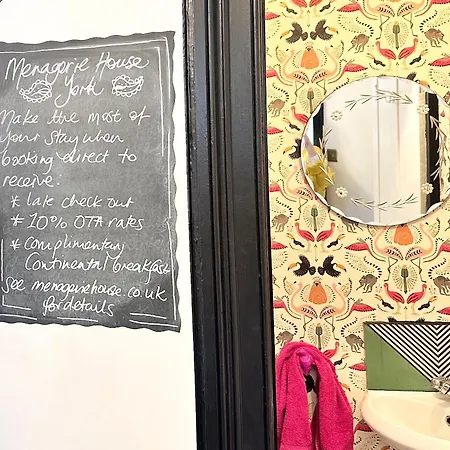 Menagerie House
York
Make the most of
your stay when
booking direct to
receive.
* late check out
* 10% OTA rates
* complimentary
Continental breakfast
See menageriehouse.co.uk
for details